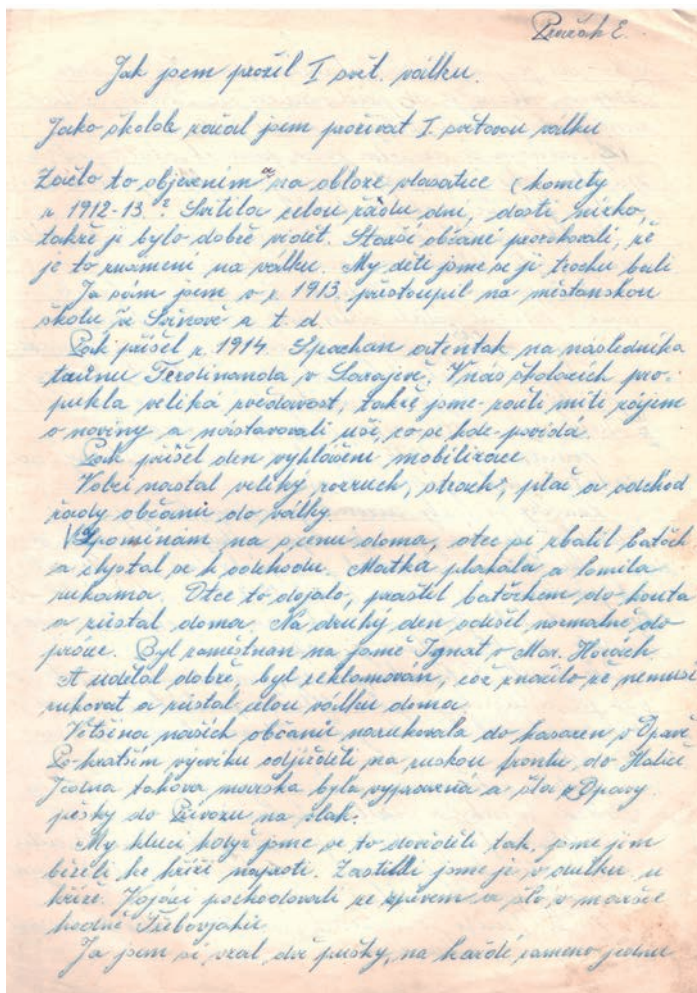 E.
Jak jsem prožil I svět. válku.
Jako školák začal jsem prožívat I. světovou válku
Začlo to objevením na obloze vlasatice (komety
r. 1912-13.? Svítila celou řádu dní, dosti nízko,
takže ji bylo dobře vidět. Starší občané prorokovali, že
je to znamení na válku. My děti jsme se ji trochu bali
Ja sám jsem v r. 1913. přestoupil na měšťanskou
školu ve Svinově a t. d.
Pak přišel r. 1914. Spáchán atentak na následníka
trůnu Ferdinanda v Sarajevě. V nás školácích pro-
pukla veliká zvědavost, takže jsme začli míti zájem
o noviny a nastavovali uši, co se kde povídá.
Pak přišel den vyhlášení mobilizace.
V obci nastal veliký rozruch, strach, pláč a odchod
řady občanů do války.
Vzpomínám na scénu doma, otec si zbalil batoch
a chystal se k odchodu. Matka plakala a lomila
rukama. Otce to dojalo, praštil batochem do kouta
a zůstal doma. Na druhý den odešel normálně do
práce. Byl zaměstnan na jamě Ignat v Mar. Horách.
A udělal dobře, byl reklamován, což značilo že nemusí
rukovat a zůstal celou válku doma.
Vetšina našich občanů narukovala do kasaren v Opavě.
Po kratším výcviku odjížděli na ruskou frontu do Haliče.
Jedna takova marška byla vypravená a šla z Opavy
pěšky do Přívozu na vlak.
My kluci když jsme se to dověděli tak, jsme jim
běželi ke kříži naproti. Zastihli jsme je v dulku u
kříže. Vojáci pochodovali ze zpěvem a šlo v maršce
hodně Třebovjaků.
Ja jsem si vzal dvě pušky, na každé rameno jednu